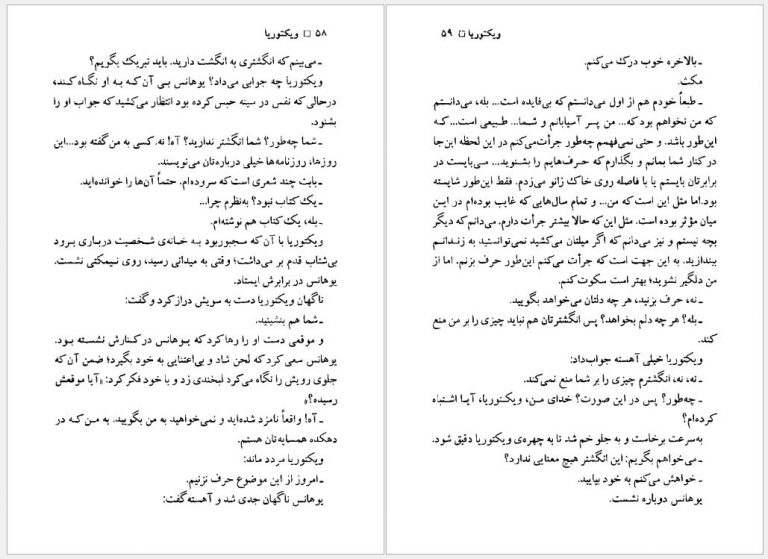 ۵۸ □ ویکتوریا
ـ می‌بینم که انگشتری به انگشت دارید. باید تبریك بگویم؟
ویکتوریا چه جوابی می‌داد؟ یوهانس بی آن‌که به او نگاه کند،
درحالی که نفس در سینه حبس کرده بود انتظار می‌کشید که جواب او را
بشنود.
ـ شما چه‌طور؟ شما انگشتر ندارید؟ آه! نه. کسی به من گفته بود...این
روزها، روزنامه‌ها خیلی درباره‌تان می‌نویسند.
ـ بابت چند شعری است که سروده‌ام. حتماً آن‌ها را خوانده‌اید.
ـ یك کتاب نبود؟ به‌نظرم چرا...
ـ بله، یك کتاب هم نوشته‌ام.
ویکتوریا با آن که مجبوربود به خانه‌ی شخصیت درباری برود
بی‌شتاب قدم بر می‌داشت؛ وقتی به میدانی رسید، روی نیمکتی نشست.
یوهانس در برابرش ایستاد.
ناگهان ویکتوریا دست به سویش دراز کرد و گفت:
ـ شما هم بنشینید.
و موقعی دست او را رها کرد که یوهانس در کنارش نشسته بود.
یوهانس سعی کرد که لحن شاد و بی‌اعتنایی به خود بگیرد؛ ضمن آن که
جلوی رویش را نگاه می‌کرد لبخندی زد و با خود فکر کرد: «آیا موقعش
رسیده؟»
ـ آه! واقعاً نامزد شده‌اید و نمی‌خواهید به من بگویید. به من که در
دهکده همسایه‌تان هستم.
ویکتوریا مردد ماند:
ـ امروز از این موضوع حرف نزنیم.
یوهانس ناگهان جدی شد و آهسته گفت:
ویکتوریا □ ۵۹
ـ بالاخره خوب درك می‌کنم.
مکث.
ـ طبعاً خودم هم از اول می‌دانستم که بی‌فایده است... بله، می‌دانستم
که من نخواهم بود که... من پسر آسیابانم و شما... طبیعی است... که
این‌طور باشد. و حتی نمی‌فهمم چه‌طور جرأت می‌کنم در این لحظه این‌جا
در کنار شما بمانم و بگذارم که حرف‌هایم را بشنوید... می‌بایست در
برابرتان بایستم یا با فاصله روی خاك زانو می‌زدم. فقط این‌طور شایسته
بود. اما مثل این است که من... و تمام سال‌هایی که غایب بوده‌ام در ایـن
میان مؤثر بوده است. مثل این‌که حالا بیشتر جرأت دارم. می‌دانم که دیگر
بچه نیستم و نیز می‌دانم که اگر میلتان می‌کشید نمی‌توانستید به زندانم
بیندازید. به این جهت است که جرأت می‌کنم این‌طور حرف بزنم. اما از
من دلگیر نشوید؛ بهتر است سکوت کنم.
ـ نه، حرف بزنید، هر چه دلتان می‌خواهد بگویید.
ـ بله؟ هر چه دلم بخواهد؟ پس انگشترتان هم نباید چیزی را بر من منع
کند.
ویکتوریا خیلی آهسته جواب‌داد:
ـ نه، نه، انگشترم چیزی را بر شما منع نمی‌کند.
ـ چه‌طور؟ پس در این صورت؟ خدای من، ویکتوریا، آیـا اشتباه
کرده‌ام؟
به‌سرعت برخاست و به جلو خم شد تا به چهره‌ی ویکتوریا دقیق شود.
ـ می‌خواهم بگویم: این انگشتر هیچ معنایی ندارد؟
ـ خواهش می‌کنم به خود بیایید.
یوهانس دوباره نشست.